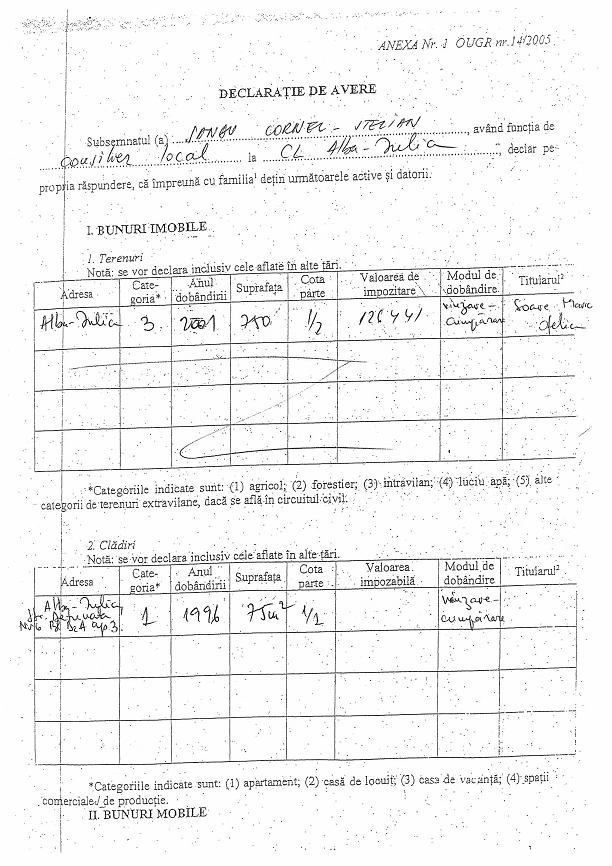 ANEXA Nr. 1 OUGR nr.14/2005
DECLARAŢIE DE AVERE
Subsemnatul (a) .... CORNEL - STELIAN ...., având funcţia de
consilier local .... la .... CL Alba-Iulia ...., declar pe
propria răspundere, că împreună cu familia¹ deţin următoarele active şi datorii.
I. BUNURI IMOBILE
1. Terenuri
Notă: se vor declara inclusiv cele aflate în alte ţări.
Adresa Cate-goria* Anul dobândirii Suprafaţa Cota parte Valoarea de impozitare Modul de dobândire Titularul²
Alba-Iulia 3. 2001 750 1/2 126441 vînzare-cumpărare Soare Maria
*Categoriile indicate sunt: (1) agricol; (2) forestier; (3) intravilan; (4) luciu apă; (5) alte
categorii de terenuri extravilane, dacă se află în circuitul civil.
2. Clădiri
Notă: se vor declara inclusiv cele aflate în alte ţări.
Adresa Cate-goria* Anul dobândirii Suprafaţa Cota parte Valoarea impozabilă Modul de dobândire Titularul²
Alba-Iulia 1 1996 75m² 1/1 vînzare-cumpărare
*Categoriile indicate sunt: (1) apartament; (2) casă de locuit; (3) casa de vacanţă; (4) spaţii
comerciale/ de producţie.
II. BUNURI MOBILE